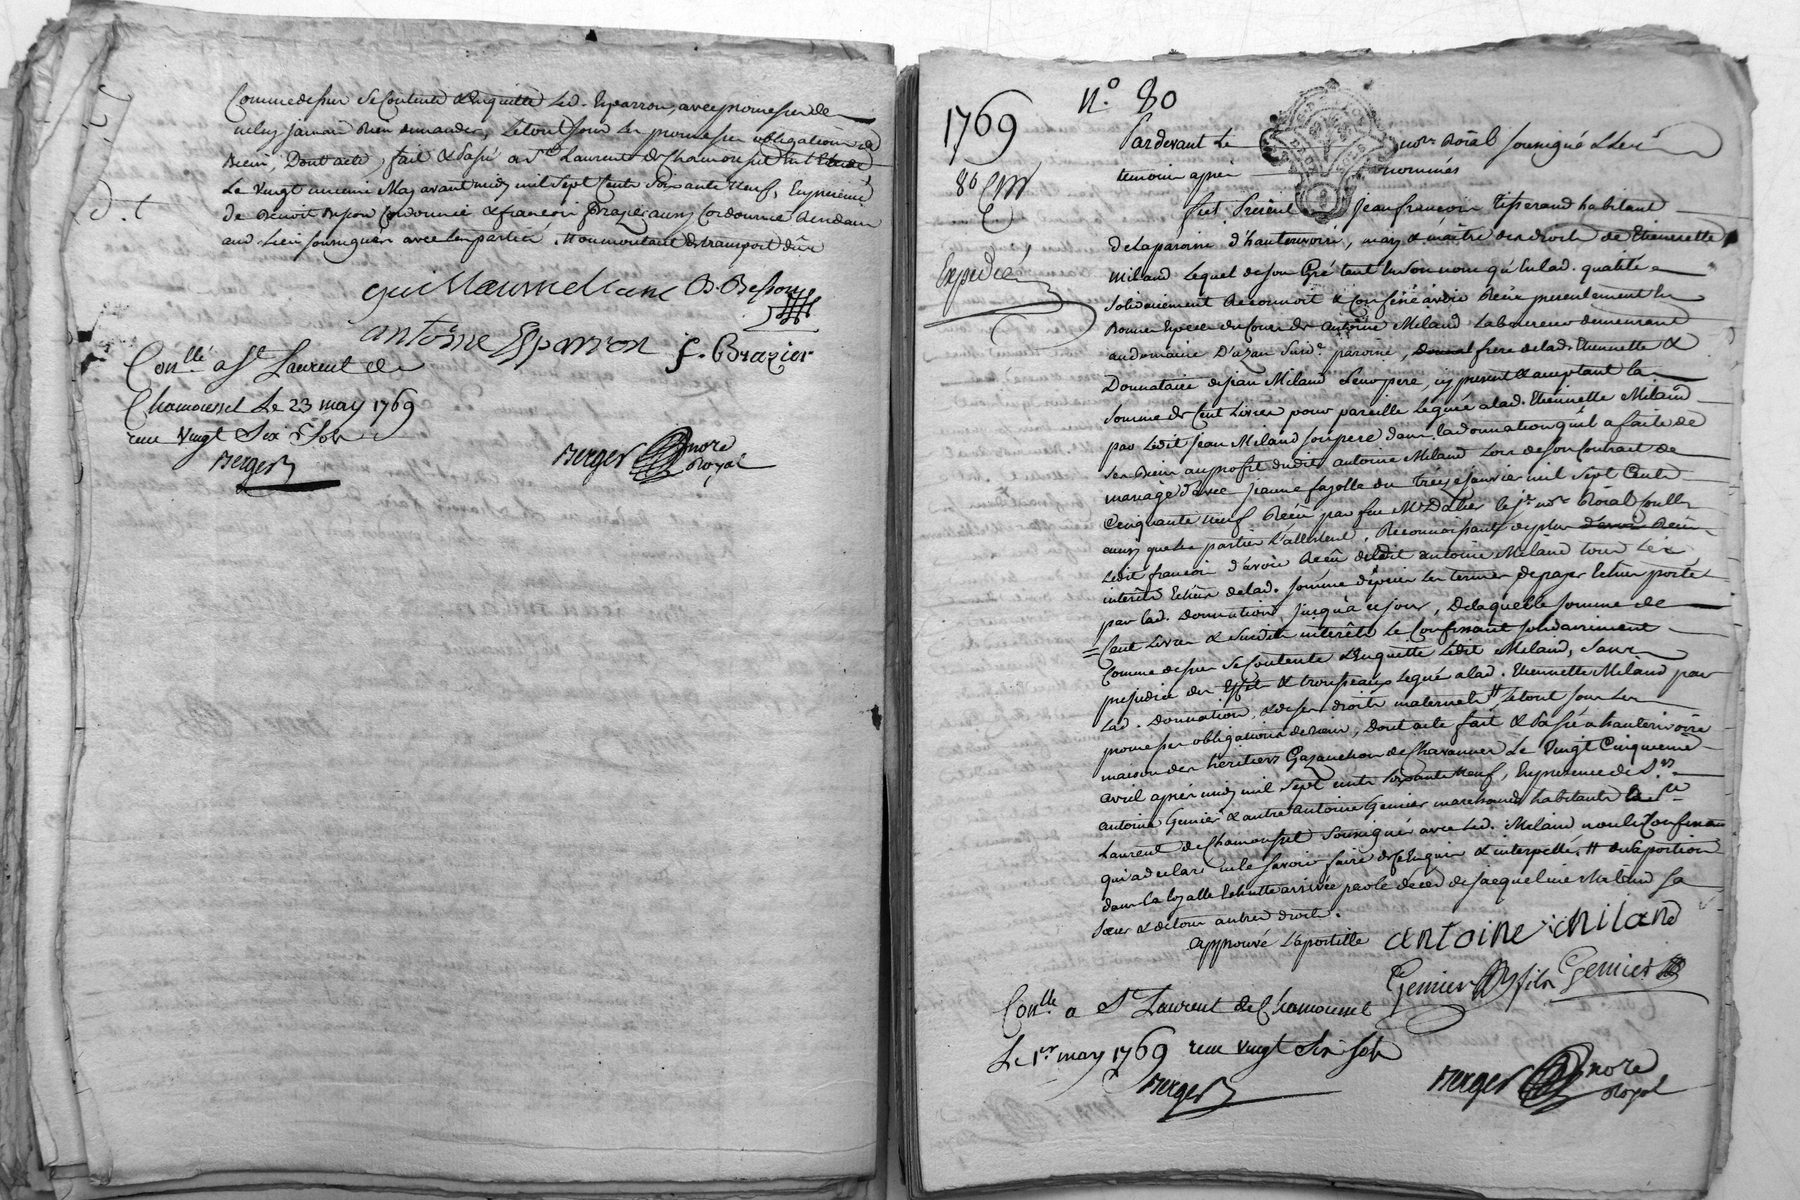 Comme dessus se Contente & Enquitte Led. Esparron, avec promesse de
ne luy jamais Rien demander, Le tout sous les promesses obligations de
Biens, Dont acte, fait & Passé a St. Laurent de Chamousset
Le vingt uniemé May avant midy mil sept Cents soixante neuf, En presence
de Benoit Besson Cordonnie & francois Brazier aussy Cordonnie Residans
aud. Lieu soussignes avec Les parties. # ou montant de transport
B. Besson
antoine Esparron f. Brazier
Conllé a St Laurent de
Chamousset Le 23 may 1769
reçu Vingt Six Sols
Berger
Berger nore
Royal
1769
No. 80
80 Cm
Expedieé
Pardevant Le nore. Roial soussigné & Les
temoins après nommés
fut Présent Jean francois tisserand habitant
de La paroisse d'hauterivoire, mary & maitre des droits de Etiennette
Miland Lequel de son Gré tant En son nom qu'En lad. qualité
solidairement Reconnoit & Confesse avoir Recu presentement En
Bonnes Especes du Cours de Antoine Miland Laboureur demeurant
au domaine D'azan Susde. paroisse, frere de lad. Etiennette &
Donnataire de jean Miland Leur pere, cy present & acceptant La
somme de Cent Livres pour pareille Leguée a lad. Etiennette Miland
par Ledit jean Miland son pere dans la donnation qu'il a faite de
ses Biens au profit dudit antoine Miland Lors de son Contrat de
mariage d'avec jeanne fayolle du treize janvier mil sept Cents
Cinquante neuf Recu par feu Me Dalier Le je. nore Roial
ainsy que Les parties L'attestent. Reconnoissant de plus d'avoir Recu
Ledit francois d'avoir Recu dudit antoine Miland tous Les
interêts Echus de lad. somme depuis Les termes de payer Echus portés
par lad. donnation, jusqu'a ce jour, De laquelle somme de
Cent Livres & susdits interêts Le Confessant solidairement
Comme dessus se Contente & Enquitte Ledit Miland, sans
prejudice des Effets & trousseaux Legués a lad. Etiennette Miland par
lad. Donnation, & de ses droits maternels # Le tout sous Les
promesses obligations de Biens, Dont acte fait & Passé a hauterivoire
maison des heritiers Gazanchon de Chavannes Le Vingt Cinquieme
avril après midy mil sept cents soixante neuf, En presence de Srs.
antoine Genier & autre antoine Genier marchands habitants a St
Laurent de Chamousset soussignés avec Led. Miland non le Confessant
qui a declaré ne le savoir faire de Ce Enquis & interpellé. # de sa portion
dans la Echutte arrivée par le deced de jacqueline Miland sa
sœur & de tous autres droits.
Approuvé L'apostille antoine miland
Genier fils Genier
Conllé a St Laurent de Chamousset
Le 1er may 1769 reçu vingt Six sols
Berger
Berger nore
Royal